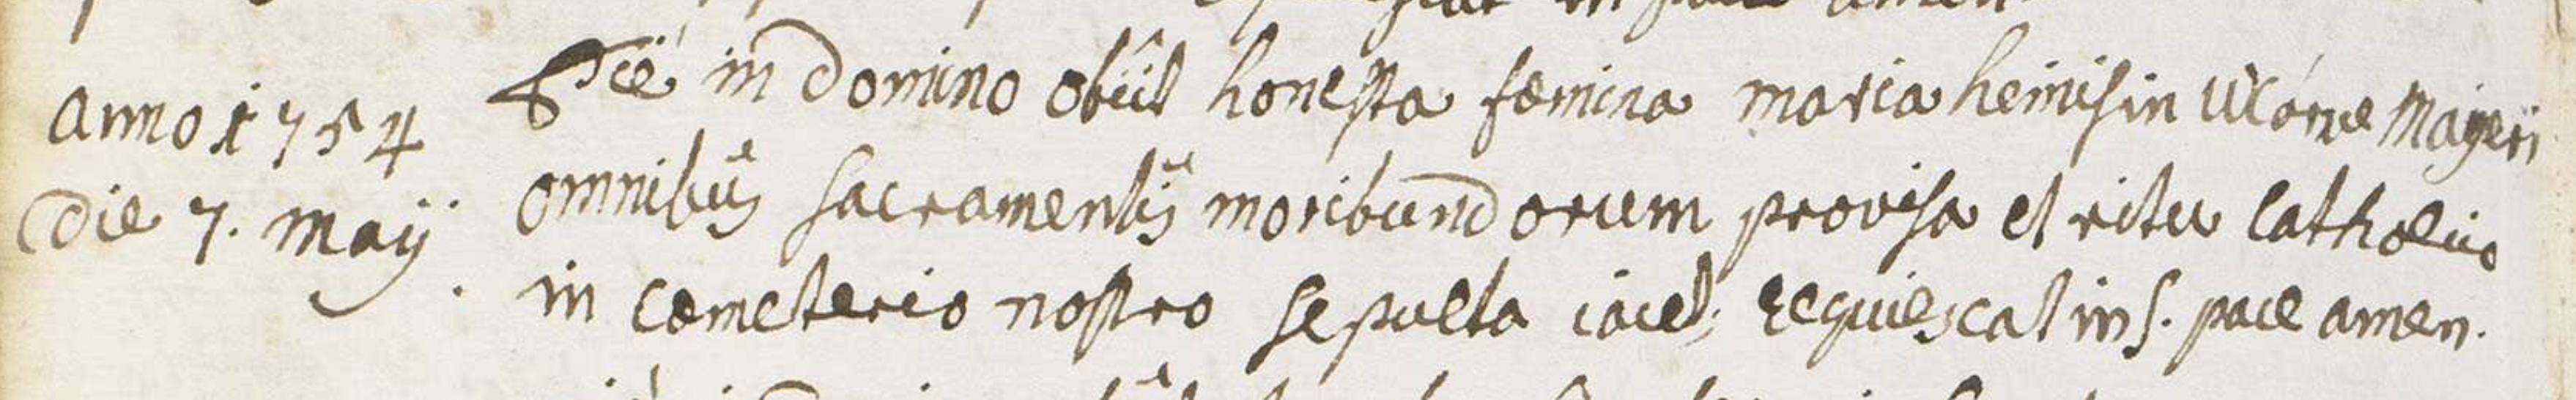 Anno 1754
Die 7. Maij.
Pié in Domino obiit honesta fæmina maria heinisin Mayeri
omnibus sacramentis moribundorum provisa et ritu Catholico
in Cœmeterio nostro sepulta iacet, requiescat in s. pace amen.